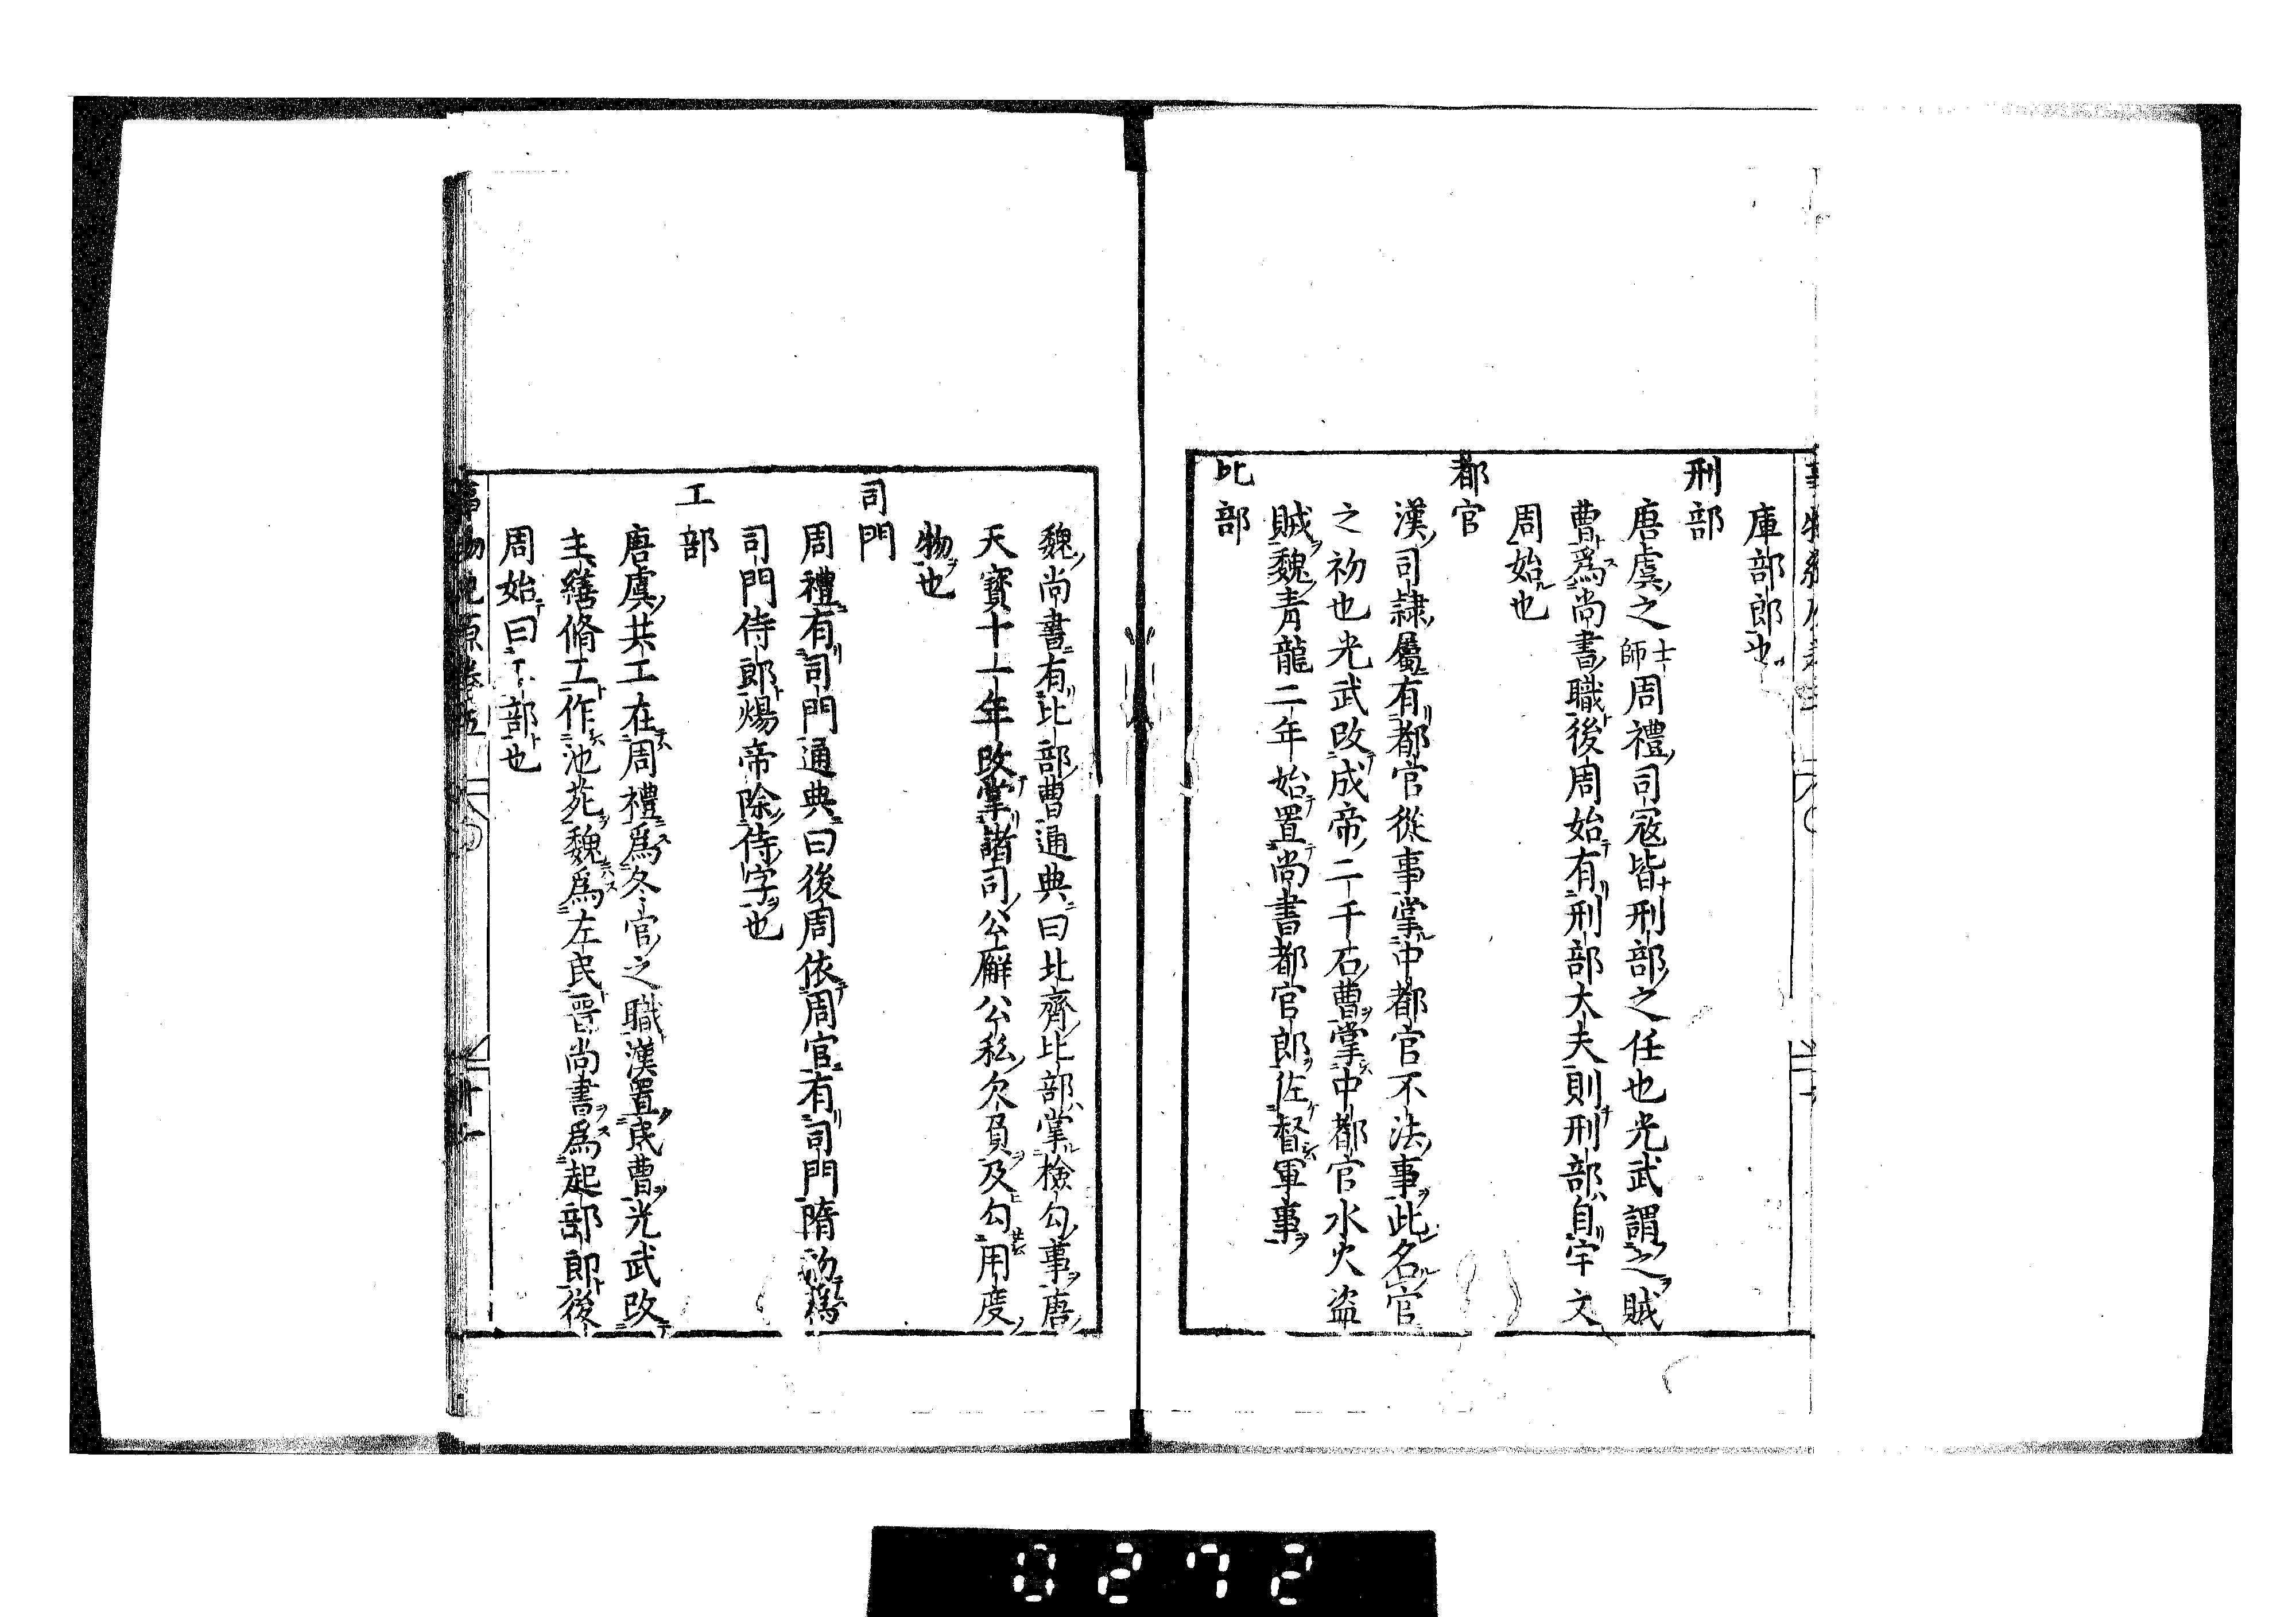 庫部郎也
刑部
唐虞之士師周禮司寇皆刑部之任也光武謂之賊
曹爲尚書職後周始有刑部大夫則刑部自宇文
周始也
都官
漢司隷屬有都官從事掌中都官不法事此名官
之初也光武改成帝二千石曹掌中都官水火盗
賊魏青龍二年始置尚書都官郎佐督軍事
比部
魏尚書有比部曹通典曰北齊比部掌檢勾事唐
天寳十一年改掌諸司公廨公私欠負及勾用度
物也
司門
周禮有司門通典曰後周依周官有司門隋初爲
司門侍郎煬帝除侍字也
工部
唐虞共工在周禮爲冬官之職漢置民曹光武改
主繕脩工作池苑魏爲左民晋尚書爲起部郎後
周始曰工部也
0272